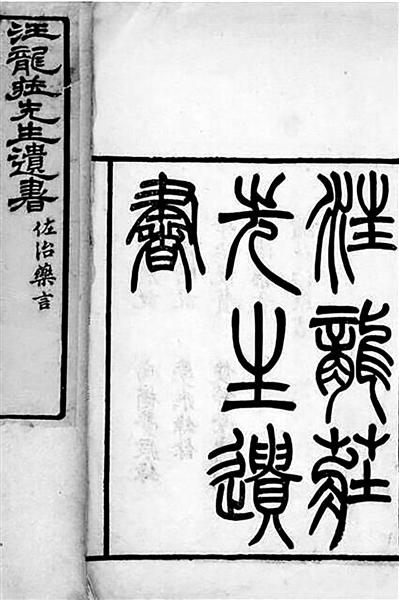 汪龍莊
先生遺
書
汪龍莊先生遺書
佐治藥言